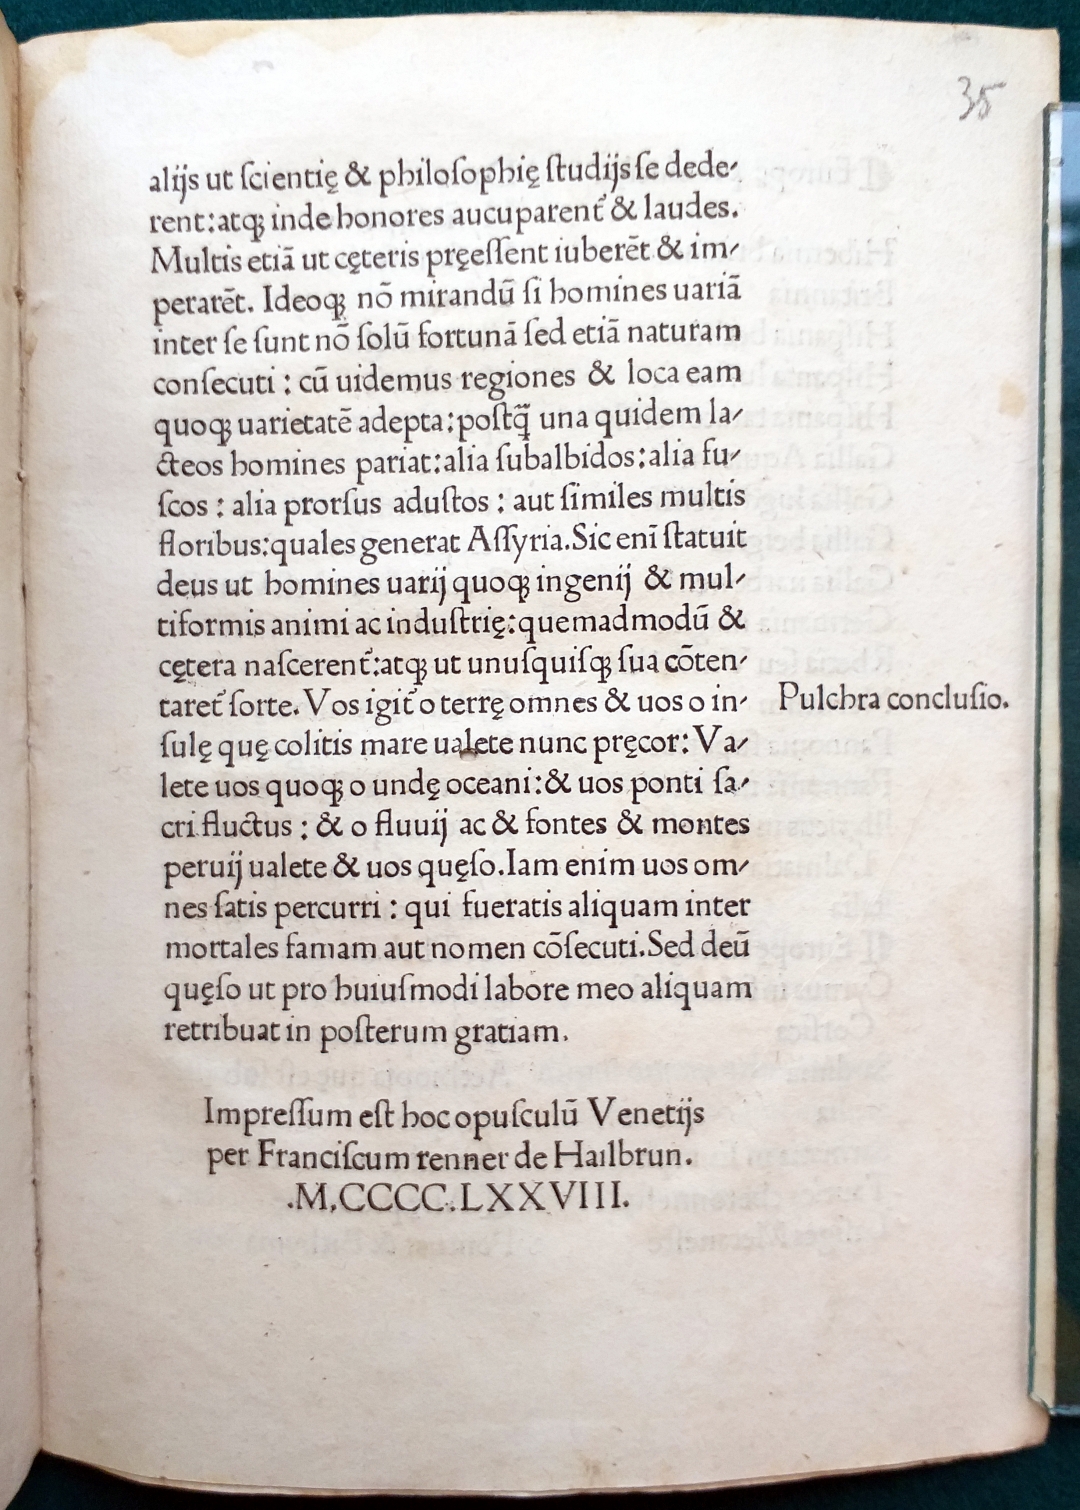 35
alijs ut ſcientię & philoſophię ſtudijs ſe dede⸗
rent: atqꝫ inde honores aucuparent᷑ & laudes.
Multis etiā ut cęteris pręeſſent iuberēt & im⸗
perarēt. Ideoqꝫ nō mirandū ſi homines uariā
inter ſe ſunt nō ſolū fortunā ſed etiā naturam
conſecuti : cū uidemus regiones & loca eam
quoqꝫ uarietatē adepta: poſtq̄̃ una quidem la⸗
cteos homines pariat: alia ſubalbidos: alia fu⸗
ſcos : alia prorſus aduſtos : aut ſimiles multis
floribus: quales generat Aſſyria. Sic enī ſtatuit
deus ut homines uarij quoqꝫ ingenij & mul⸗
tiformis animi ac induſtrię: quemadmodū &
cętera naſcerent᷑: atqꝫ ut unuſquiſqꝫ ſua cōten⸗
taret᷑ ſorte. Vos igit᷑ o terrę omnes & uos o in⸗
Pulchra concluſio.
ſulę quę colitis mare ualete nunc pręcor: Va⸗
lete uos quoqꝫ o undę oceani: & uos ponti ſa⸗
cri fluctus : & o fluuij ac & fontes & montes
peruij ualete & uos quęſo. Iam enim uos om⸗
nes ſatis percurri : qui fueratis aliquam inter
mortales famam aut nomen cōſecuti. Sed deū
quęſo ut pro huiuſmodi labore meo aliquam
retribuat in poſterum gratiam.
Impreſſum eſt hoc opuſculū Venetijs
per Franciſcum renner de Hailbrun.
.M.CCCC.LXXVIII.